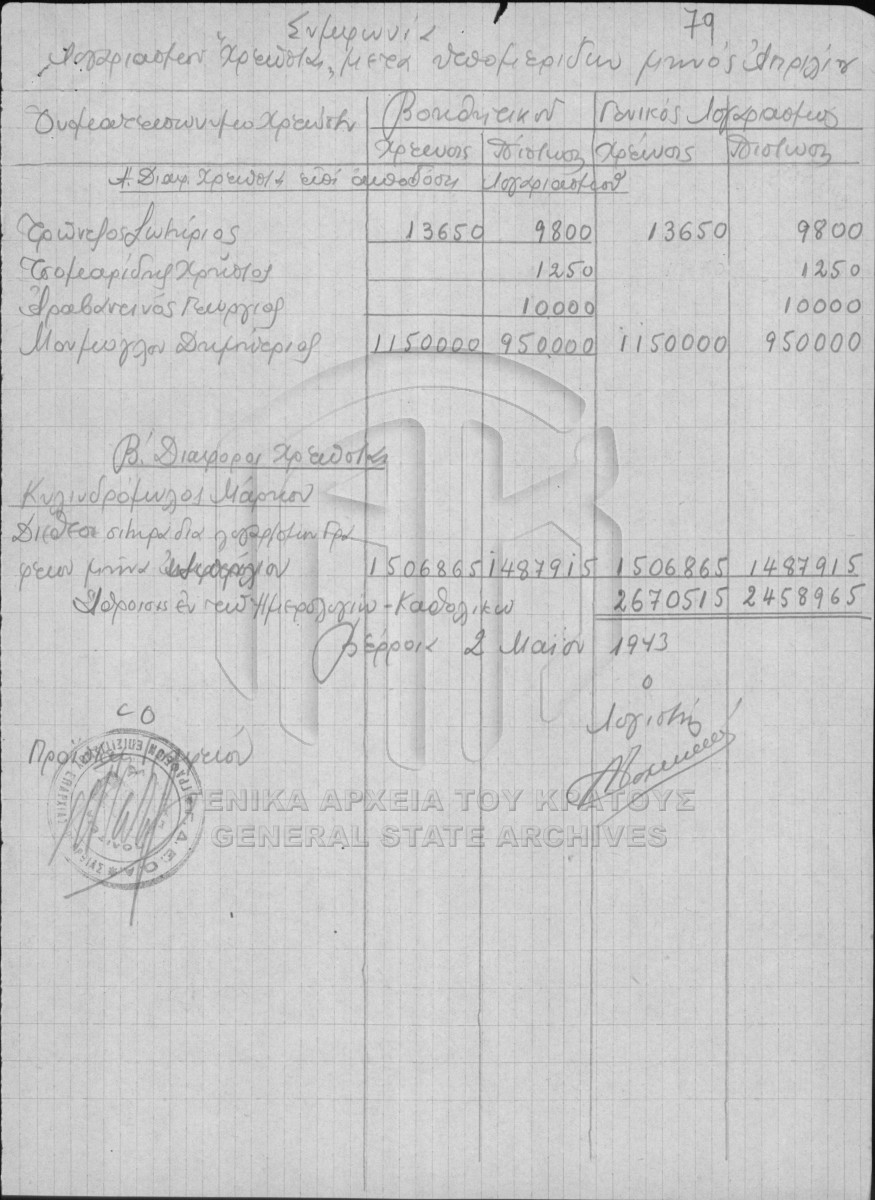 79
Συμφωνία
Λογαριασμού "Χρεώσται" μετά υπομερίδων μηνός Απριλίου
Ονοματεπώνυμο Χρεώστου Βοηθητικού Γενικός Λογαριασμός
Χρέωσις Πίστωσις Χρέωσις Πίστωσις
Α. Διαφ. Χρεώσται επί αποδόσει Λογαριασμού
Σωτήριος 13650 9800 13650 9800
Χρήστος 1250 1250
Αραβαντινός Γεώργιος 10000 10000
Μουμόγλου Δημήτριος 1150000 950000 1150000 950000
Β΄. Διάφοροι Χρεώσται
Κυλινδρόμυλος Μάρκου
Διάθεσις σιτηρά δια λογαρισμόν Γρα
φείου μήνα 1506865 1487915 1506865 1487915
Άθροισις εν τω Ημερολογίω - Καθολικώ 2670515 2458965
Βέρροια 2 Μαΐου 1943
ο
Λογιστής
Ο
Προϊστ. Γραφείου
ΓΕΝΙΚΑ ΑΡΧΕΙΑ ΤΟΥ ΚΡΑΤΟΥΣ
GENERAL STATE ARCHIVES